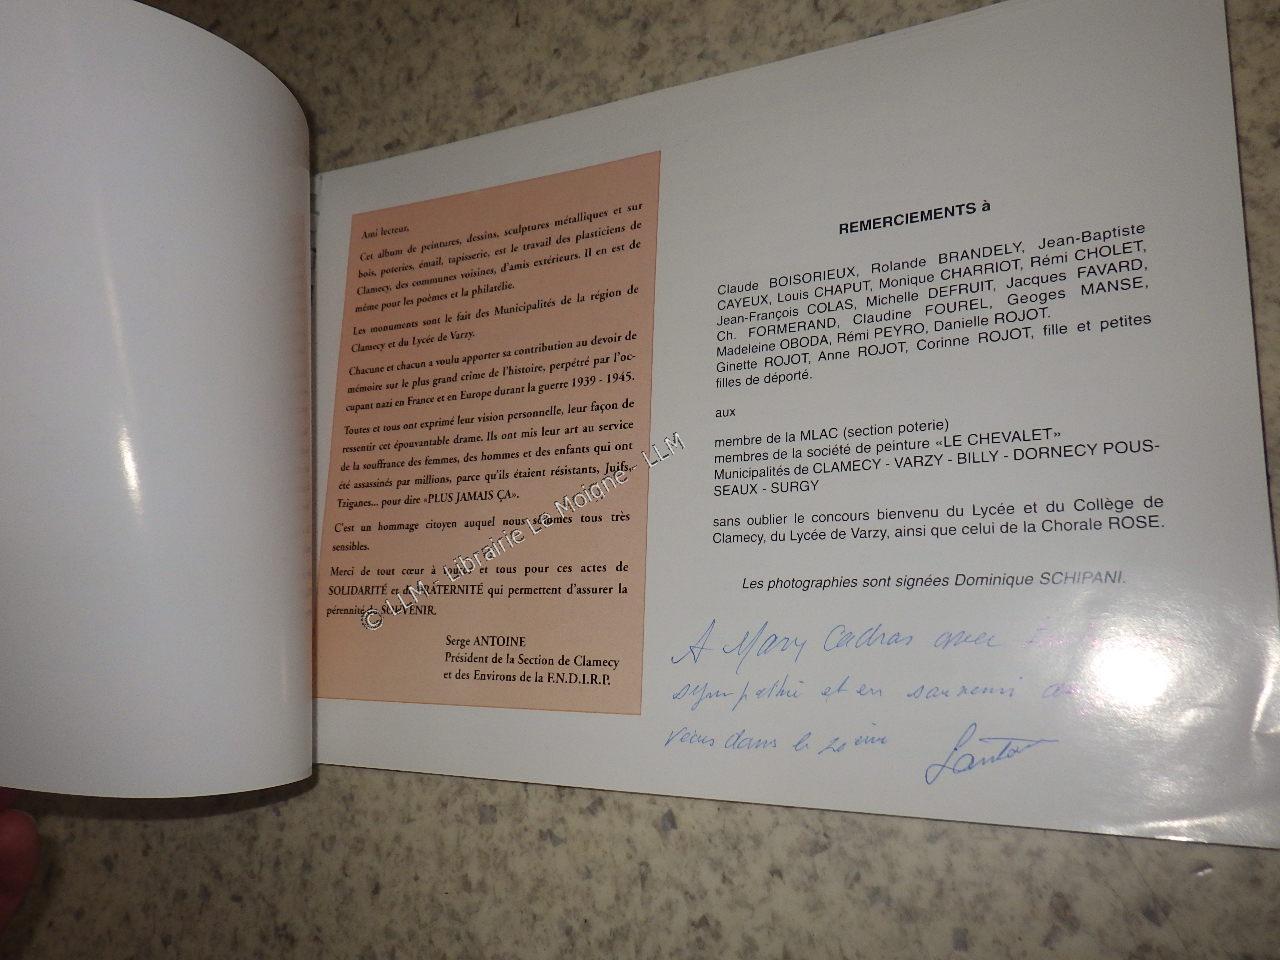 Ami lecteur,
Cet album de peintures, dessins, sculptures métalliques et sur
bois, poteries, émail, tapisserie, est le travail des plasticiens de
Clamecy, des communes voisines, d'amis extérieurs. Il en est de
même pour les poèmes et la philatélie.
Les monuments sont le fait des Municipalités de la région de
Clamecy et du Lycée de Varzy.
Chacune et chacun a voulu apporter sa contribution au devoir de
mémoire sur le plus grand crime de l'histoire, perpétré par l'oc-
cupant nazi en France et en Europe durant la guerre 1939 - 1945.
Toutes et tous ont exprimé leur vision personnelle, leur façon de
ressentir cet épouvantable drame. Ils ont mis leur art au service
de la souffrance des femmes, des hommes et des enfants qui ont
été assassinés par millions, parce qu'ils étaient résistants, Juifs,
Tziganes... pour dire «PLUS JAMAIS ÇA».
C'est un hommage citoyen auquel nous sommes tous très
sensibles.
Merci de tout cœur à toutes et tous pour ces actes de
SOLIDARITÉ et de FRATERNITÉ qui permettent d'assurer la
pérennité du SOUVENIR.
Serge ANTOINE
Président de la Section de Clamecy
et des Environs de la F.N.D.I.R.P.
© LLM - Librairie Le Moigne - LLM
REMERCIEMENTS à
Claude BOISORIEUX, Rolande BRANDELY, Jean-Baptiste
CAYEUX, Louis CHAPUT, Monique CHARRIOT, Rémi CHOLET,
Jean-François COLAS, Michelle DEFRUIT, Jacques FAVARD,
Ch. FORMERAND, Claudine FOUREL, Geoges MANSE,
Madeleine OBODA, Rémi PEYRO, Danielle ROJOT.
Ginette ROJOT, Anne ROJOT, Corinne ROJOT, fille et petites
filles de déporté.
aux
membre de la MLAC (section poterie)
membres de la société de peinture «LE CHEVALET»
Municipalités de CLAMECY - VARZY - BILLY - DORNECY POUS-
SEAUX - SURGY
sans oublier le concours bienvenu du Lycée et du Collège de
Clamecy, du Lycée de Varzy, ainsi que celui de la Chorale ROSE.
Les photographies sont signées Dominique SCHIPANI.
A Mary Cadras avec
sympathie et en souvenir
vécus dans le 20ème